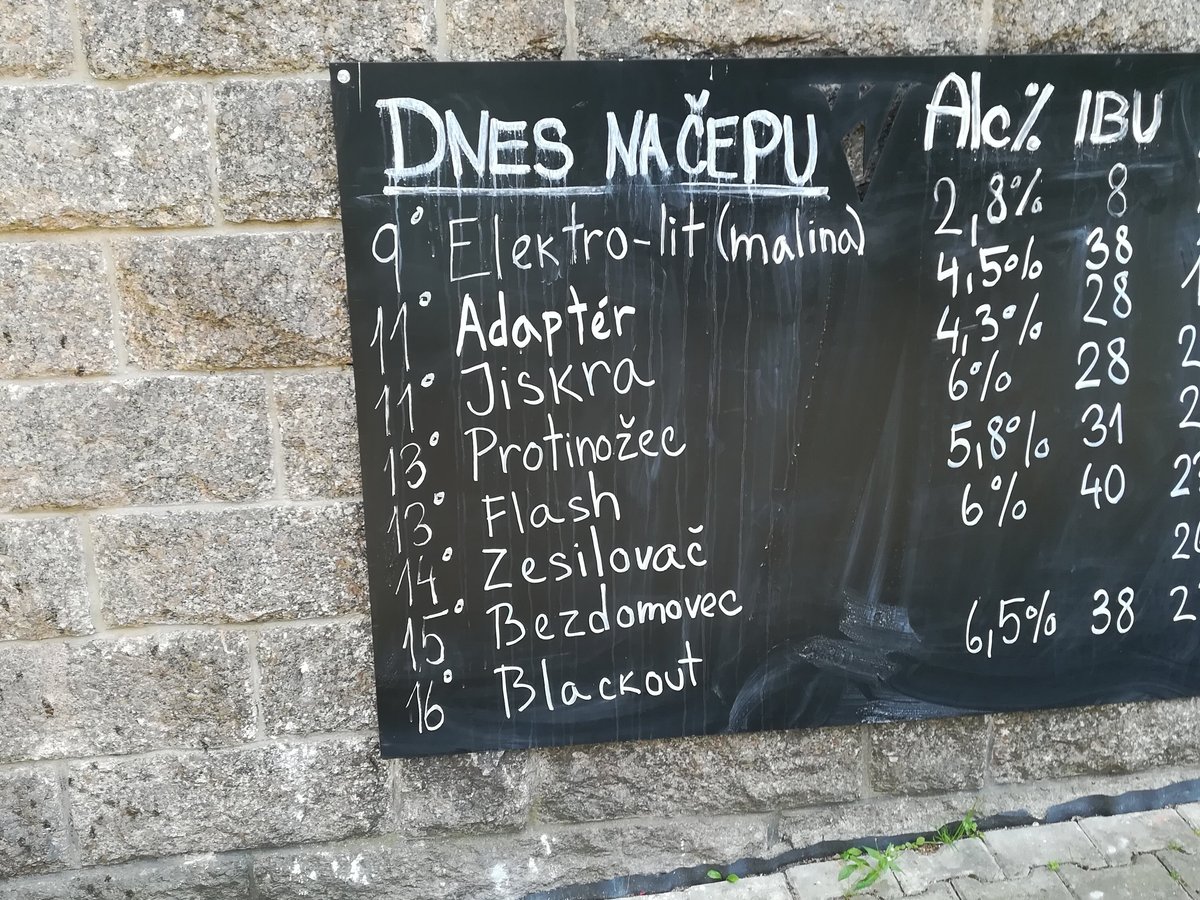 DNES NA ČEPU Alc% IBU
9° Elektro-lit (malina) 2,8% 8
11° Adaptér 4,5% 38
11° Jiskra 4,3% 28
13° Protinožec 6% 28
13° Flash 5,8% 31
14° Zesilovač 6% 40
15° Bezdomovec
16° Blackout 6,5% 38